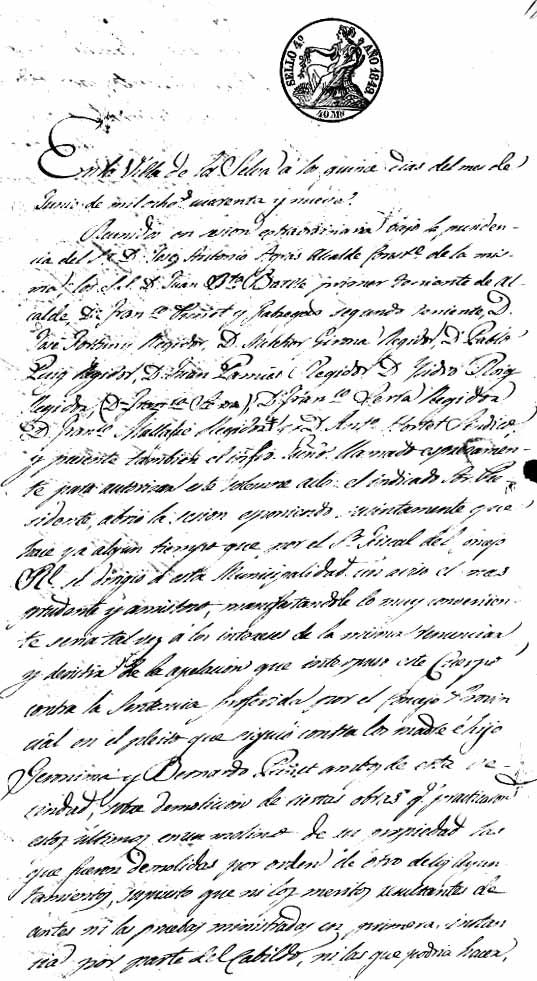 SELLO 4º AÑO 1849
40 MS
En la Villa de la Selva a los quinse dias del mes de
Junio de mil ochoˢ cuarenta y nueve.
Reunidos en sesion estraordinaria bajo la presiden-
cia del Sr. D. Antonio Alcalde Constl. de la mis-
ma los S.S. D. Juan Bta. primer teniente de Al-
calde, Dn. Franco. y segundo teniente, D.
José Fortuny Regidor, D. Melchor Girona Regidor, D. Pablo
Puig Regidor, D. Juan Regidor D. Isidro Roig
Regidor, D. Franco. Regidor
D. Franco. Regidor y D. Anto. Sindico,
y presente tambien el infro. Sriño. llamado espresamen-
te para autorizar este solemne acto: el indicado Sor. Pre-
sidente, abrió la sesion esponiendo sucintamente que
hace ya algun tiempo que por el Sr. Fiscal del Consejo
Rl. se dirigió á esta Municipalidad un aviso el mas
prudente y amistoso, manifestandole lo muy convenien-
te seria tal vez á los intereses de la misma renunciar
y desistir de la apelacion que interpuso este Cuerpo
contra la Sentencia proferida por el Consejo Provin-
cial en el pleito que siguió contra los madre é hijo
Geronima y Bernardo ambos de esta ve-
cindad, sobre demolicion de ciertas obras q. practicaron
estos últimos en un molino de su propiedad las
que fueron demolidas por orden de otro de los Ayun-
tamientos, supuesto que ni los meritos resultantes de
antes ni las pruebas ministradas en primera instan-
cia por parte del Cabildo, ni las que podria hacer,